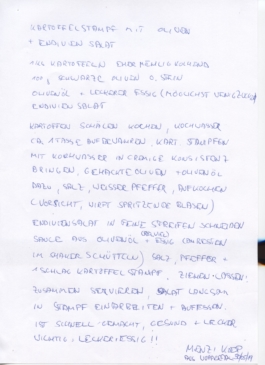 KARTOFFELSTAMPF MIT OLIVEN
+ ENDIVIEN SALAT
1 KG KARTOFFELN EHER MEHLIG KOCHEND
SCHWARZE OLIVEN O. STEIN
OLIVENÖL + LECKERER ESSIG (MÖGLICHST
ENDIVIENSALAT
KARTOFFELN SCHÄLEN KOCHEN, KOCHWASSER
CA 1 TASSE AUFBEWAHREN. KART STAMPFEN
MIT KOCHWASSER IN CREMIGE KONSISTENZ
BRINGEN, GEHACKTE OLIVEN + OLIVENÖL
DAZU, SALZ, WEISSER PFEFFER, AUFKOCHEN
(VORSICHT, WIRFT SPRITZENDE BLASEN)
ENDIVIENSALAT IN FEINE STREIFEN SCHNEIDEN
SAUCE AUS OLIVENÖL + ESSIG
IM SHAKER SCHÜTTELN) SALZ, PFEFFER +
KARTOFFELSTAMPF. ZIEHEN LASSEN.
ZUSAMMEN SERVIEREN, SALAT LANGSAM
IN STAMPF EINARBEITEN + AUFESSEN.
IST SCHNELL GEMACHT, GESUND + LECKER
WICHTIG, LECKER ESSIG!!